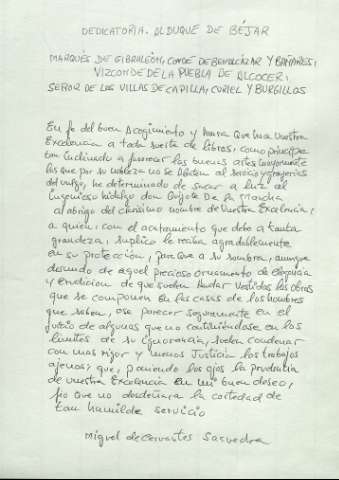 DEDICATORIA. AL DUQUE DE BÉJAR
MARQUÉS DE GIBRALEÓN, CONDE DE BENALCÁZAR Y BAÑARES,
VIZCONDE DE LA PUEBLA DE ALCOCER,
SEÑOR DE LAS VILLAS DE CAPILLA, CURIEL Y BURGILLOS
En fe del buen Acogimiento y honra Que hace Vuestra
Excelencia a toda suerte de libros, como príncipe
tan inclinado a favorecer las buenas artes, mayormente
las que por su nobleza no se abaten al servicio y granjerías
del vulgo, he determinado de sacar a luz al
Ingenioso hidalgo don Quijote De la Mancha
al abrigo del clarísimo nombre de Vuestra Excelencia,
a quien, con el acatamiento que debo a tanta
grandeza, suplico le reciba agradablemente
en su protección, para que a su sombra, aunque
desnudo de aquel precioso ornamento de elegancia
y erudición de que suelen Andar Vestidas las obras
que se componen en las casas de los hombres
que saben, ose parecer seguramente en el
juicio de algunos que no conteniéndose en los
límites de su ignorancia, suelen condenar
con mas rigor y menos Justicia los trabajos
ajenos; que, poniendo los ojos la prudencia
de vuestra Excelencia en mi buen deseo,
fío que no desdeñará la cortedad de
tan humilde servicio
Miguel de Cervantes Saavedra